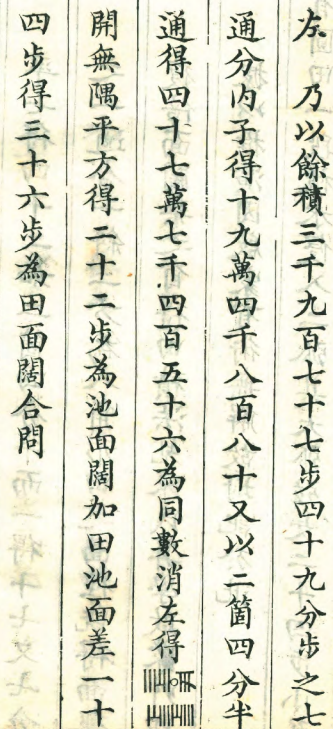 左　乃以餘積三千九百七十七步四十九分步之七
通分內子得十九萬四千八百八十又以二箇四分半
通得四十七萬七千四百五十六為同數消左得
開無隅平方得二十二步為池面闊加田池面差一十
四步得三十六步為田面闊合問